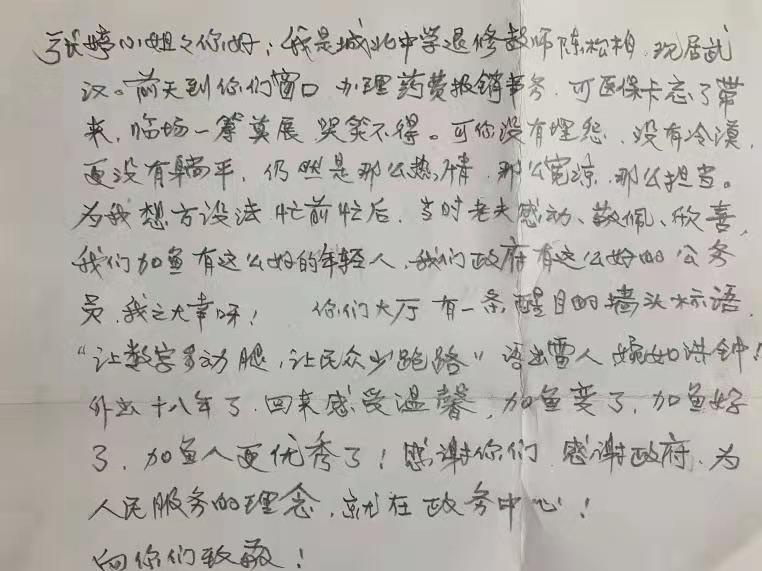 张婷小姐:你好:我是城北中学退修教师陈松柏,现居武
汉。前天到你们窗口 办理药费报销事务,可医保卡忘了带
来,临场一筹莫展 哭笑不得。可你没有埋怨,没有冷漠,
更没有躺平,仍然是那么热情,那么宽凉,那么担当。
为我想方设法 忙前忙后,当时老夫感动、敬佩、欣喜,
我们加鱼有这么好的年轻人,我们政府有这么好的公务
员,我之大幸呀! 你们大厅有一条醒目的墙头标语,
“让数字多动腿,让民众少跑路”语出雷人 婉如洪钟!
外出十八年了,回来感受温馨,加鱼变了,加鱼好
了,加鱼人更优秀了!感谢你们 感谢政府,为
人民服务的理念,就在政务中心!
向你们致敬!